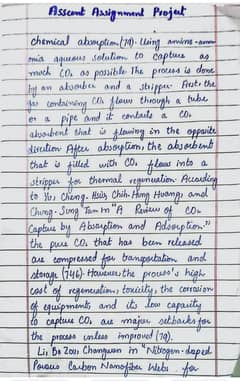 Asscent Assignment Project
chemical absorption (79). Using amine-amm
onia aqueous solution to capture as
much CO₂ as possible. The process is done
by an absorber and a stripper. First, the
gas containing CO₂ flows through a tube
or a pipe and it contacts a CO₂
absorbent that is flowing in the opposite
direction. After absorption, the absorbent
that is filled with CO₂ flows into a
stripper for thermal regeneration. According
to Yu, Cheng-Hsiu, Chih-Hung Huang, and
Chung-Sung Tan in "A Review of CO₂
Capture by Absorption and Adsorption."
the pure CO₂ that has been released
are compressed for transportation and
storage (746). However, the process's high
cost of regeneration, toxicity, the corrosion
of equipments, and its low capacity
to capture CO₂ are major setbacks for
the process unless improved (79).
Li, Bo Zou, Changwen in "Nitrogen-doped
Porous Carbon Nanofiber Webs for